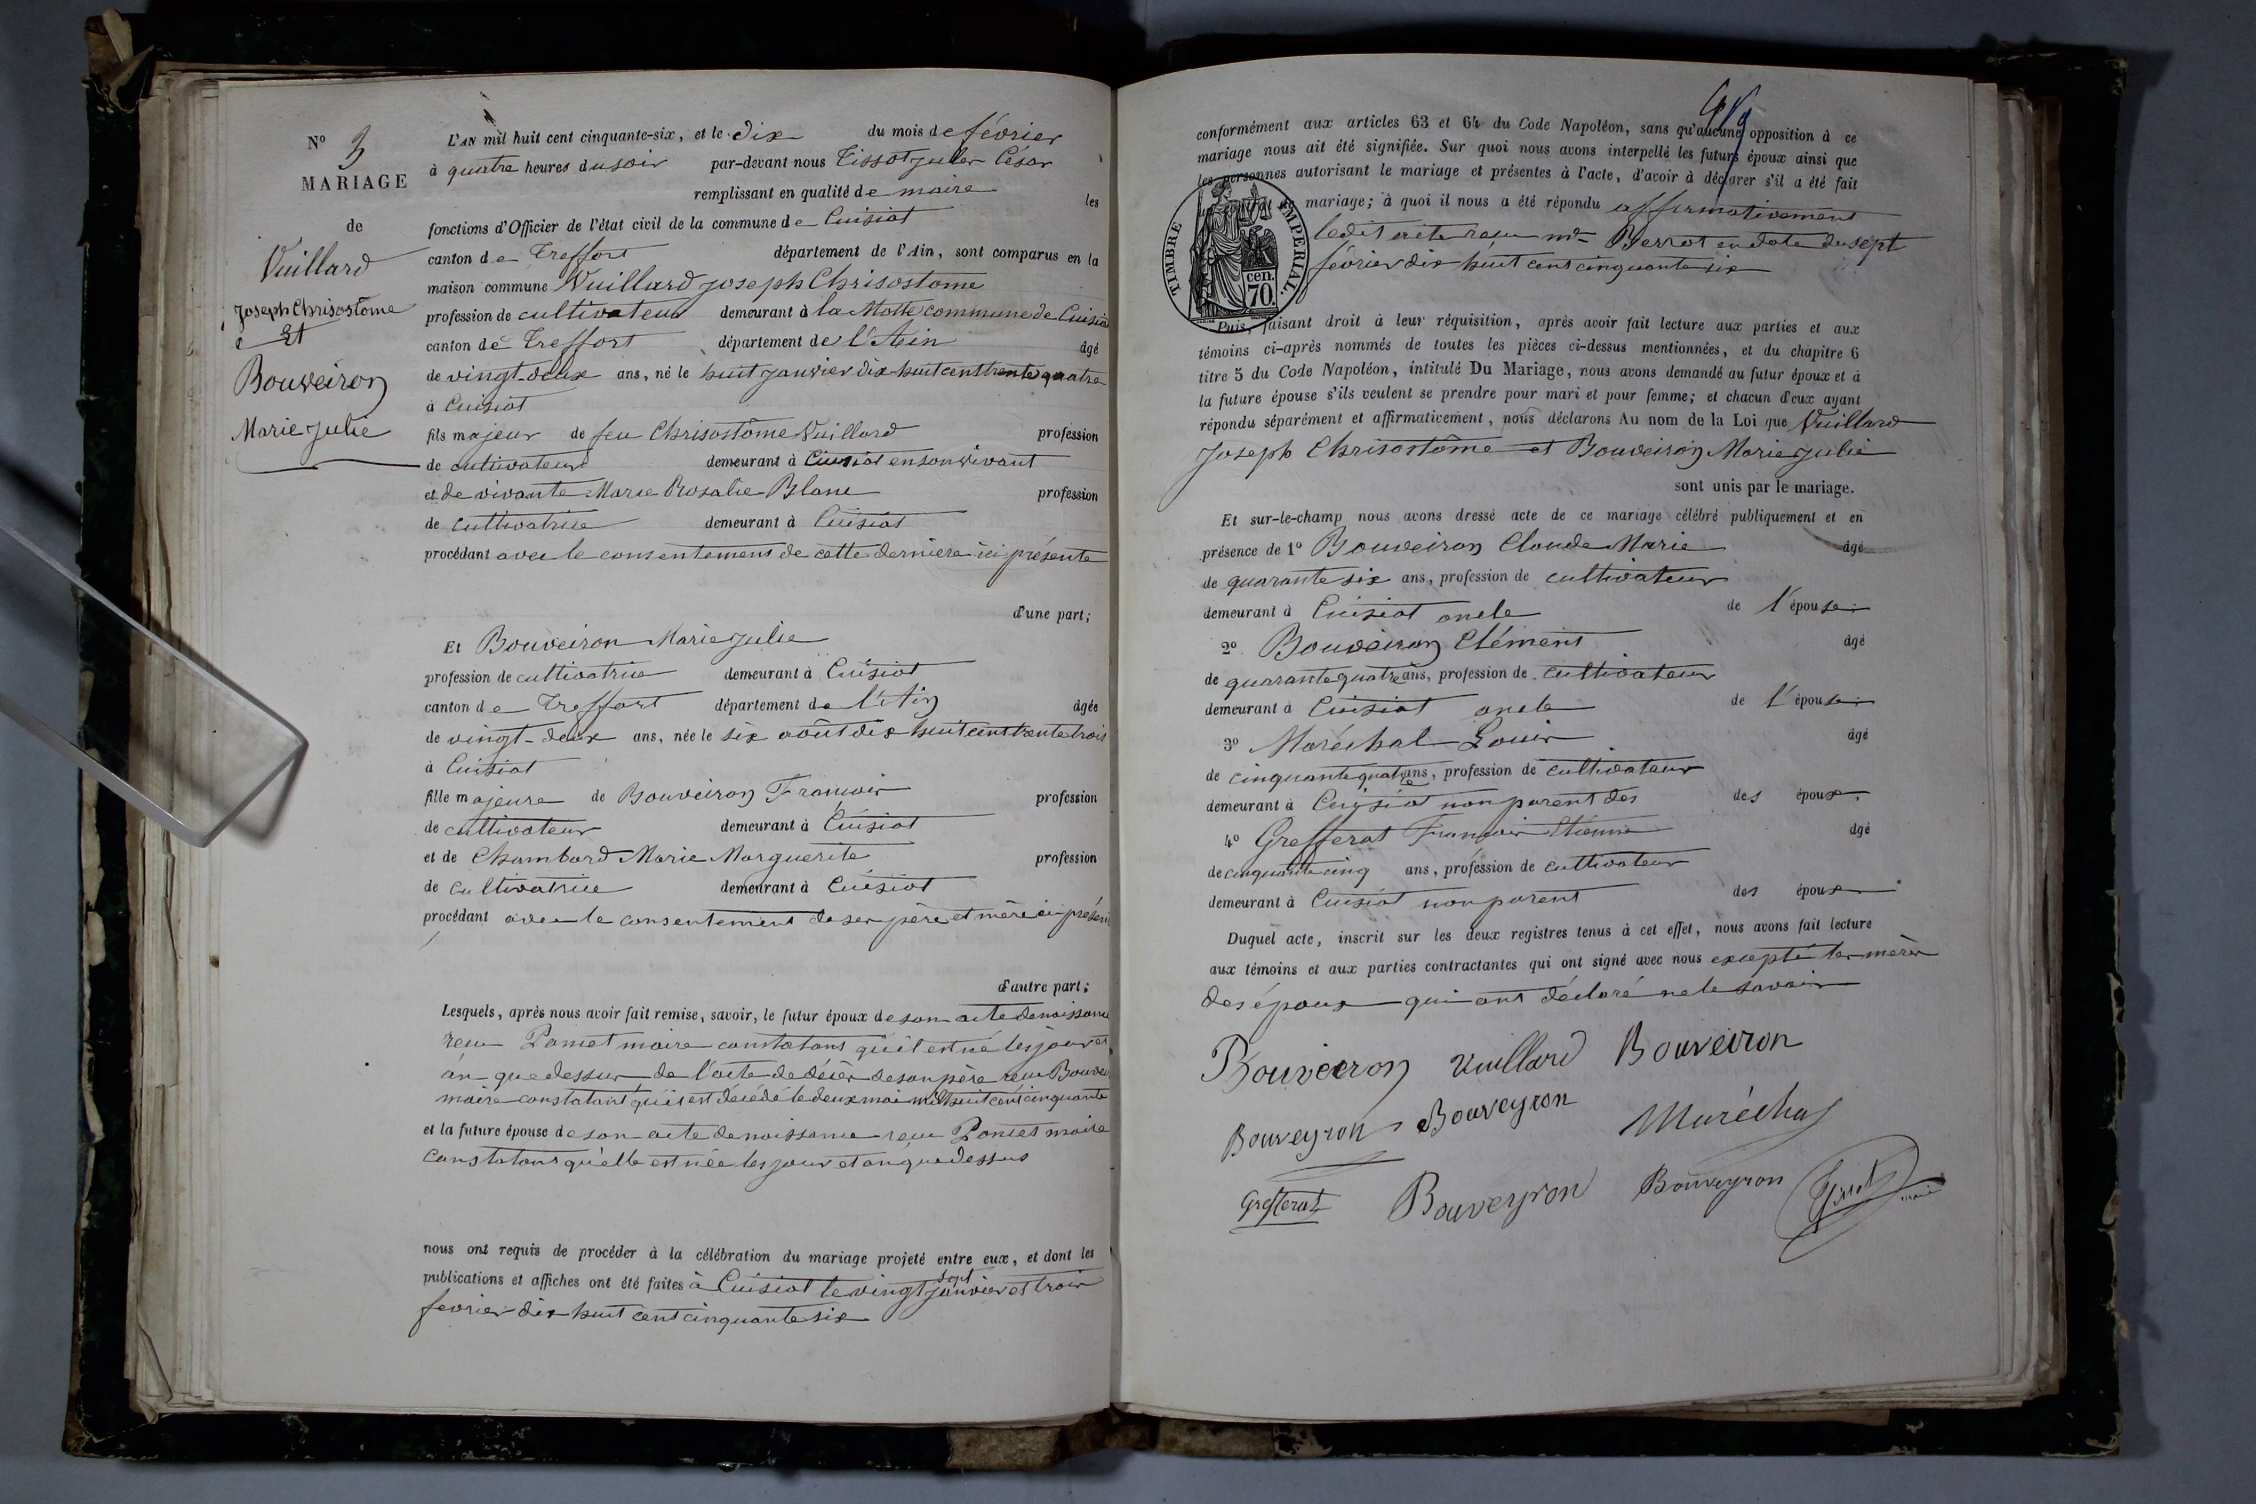 N° 3
MARIAGE
de
Vuillard
Joseph Chrisostôme
Et
Bouveiron
Marie Julie
L'AN mil huit cent cinquante-six, et le dix du mois de février
à quatre heures du soir par-devant nous Tissot Jules César
remplissant en qualité de maire les
fonctions d'Officier de l'état civil de la commune de Cuisiat
canton de Treffort département de l'Ain, sont comparus en la
maison commune Vuillard Joseph Chrisostome
profession de cultivateur demeurant à la Motte commune de Cuisiat
canton de Treffort département de l'Ain âgé
de vingt-deux ans, né le huit janvier dix huit cent trente quatre
à Cuisiat
fils majeur de feu Chrisostôme Vuillard profession
de cultivateur demeurant à Cuisiat en son vivant
et de vivante Marie Rosalie Blanc profession
de cultivatrice demeurant à Cuisiat
procédant avec le consentement de cette dernière ici présente
d'une part;
Et Bouveiron Marie Julie
profession de cultivatrice demeurant à Cuisiat
canton de Treffort département de l'Ain âgée
de vingt-deux ans, née le six août dix huit cent trente trois
à Cuisiat
fille majeure de Bouveiron François profession
de cultivateur demeurant à Cuisiat
et de Chambard Marie Marguerite profession
de cultivatrice demeurant à Cuisiat
procédant avec le consentement de ses père et mère ici présents
d'autre part;
Lesquels, après nous avoir fait remise, savoir, le futur époux de son acte de naissance
reçu Poncet maire constatant qu'il est né les jour et
an que dessus, de l'acte de décès de son père reçu
maire constatant qu'il est décédé le deux mai mil huit cent cinquante
et la future épouse de son acte de naissance reçu Poncet maire
constatant qu'elle est née les jour et an que dessus
nous ont requis de procéder à la célébration du mariage projeté entre eux, et dont les
publications et affiches ont été faites à Cuisiat le vingt sept janvier et trois
fevrier dix huit cent cinquante six
conformément aux articles 63 et 64 du Code Napoléon, sans qu'aucune opposition à ce
mariage nous ait été signifiée. Sur quoi nous avons interpellé les futurs époux ainsi que
les personnes autorisant le mariage et présentes à l'acte, d'avoir à déclarer s'il a été fait
mariage; à quoi il nous a été répondu affirmativement
ledit acte reçu me Perrot en date du sept
février dix huit cent cinquante six
TIMBRE IMPERIAL.
cen.
70.
Puis, faisant droit à leur réquisition, après avoir fait lecture aux parties et aux
témoins ci-après nommés de toutes les pièces ci-dessus mentionnées, et du chapitre 6
titre 5 du Code Napoléon, intitulé Du Mariage, nous avons demandé au futur époux et à
la future épouse s'ils veulent se prendre pour mari et pour femme; et chacun d'eux ayant
répondu séparément et affirmativement, nous déclarons Au nom de la Loi que Vuillard
Joseph Chrisostôme et Bouveiron Marie Julie
sont unis par le mariage.
Et sur-le-champ nous avons dressé acte de ce mariage célébré publiquement et en
présence de 1° Bouveiron Claude Marie âgé
de quarante six ans, profession de cultivateur
demeurant à Cuisiat oncle de l'épouse
2° Bouveiron Clément âgé
de quarante quatre ans, profession de cultivateur
demeurant à Cuisiat oncle de l'épouse
3° Maréchal Louis âgé
de cinquante quatre ans, profession de cultivateur
demeurant à Cuisiat non parent des des époux
4° Grefferat François Etienne âgé
de cinquante cinq ans, profession de cultivateur
demeurant à Cuisiat non parent des époux
Duquel acte, inscrit sur les deux registres tenus à cet effet, nous avons fait lecture
aux témoins et aux parties contractantes qui ont signé avec nous excepté les mères
des époux qui ont déclaré ne le savoir
Bouveiron Vuillard Bouveiron
Bouveyron Bouveyron Maréchal
Grefferat Bouveyron Bouveyron Tissot